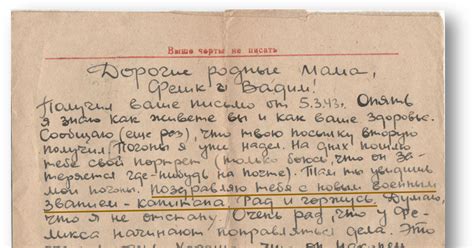 Выше черты не писать
Дорогие родные Мама,
Феликс и Вадим!
Получил ваше письмо от 5.3.43г. Опять
я знаю как живете вы и как ваше здоровье.
Сообщаю (еще раз), что твою посылку вторую
получил. Погоны я уже надел. На днях пошлю
тебе свой портрет (только боюсь, что он за-
теряется где-нибудь на почте). Там ты увидишь
мои погоны. Поздравляю тебя с новым военным
званием - капитана. Рад и горжусь. Думаю,
что я не отстану. Очень рад, что у Фе-
ликса начинают поправляться дела. Это